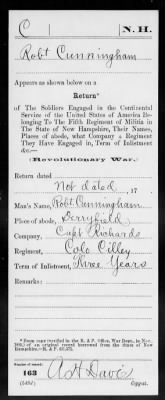 C N.H.
Robt Cunningham
Appears as shown below on a
Return*
of The Soldiers Engaged in the Continental
Service of the United States of America Be-
longing To The Fifth Regiment of Militia in
The State of New Hampshire, Their Names,
Places of abode, what Company & Regiment
They have Engaged in, Term of Enlistment
&c.—
(Revolutionary War.)
Return dated
Not dated, 17
Man's Name, Robt Cunningham
Place of abode, Derryfield
Company, Capt Richards
Regiment, Colo Cilley
Term of Enlistment, Three Years
Remarks:
* Copy (not certified by the R. & P. Office, War Dept., in
of an original record borrowed from the State of New
Hampshire.—R. & P.
Number of record:
163 A H Davis
Copyist.